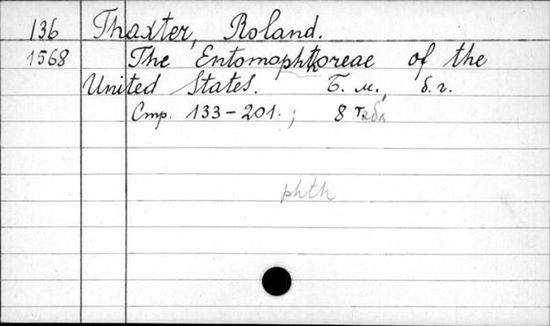 136 Thaxter, Roland.
1568 The Entomophthoreae of the
United States. Б. м., б. г.
Стр. 133-201.; 8 табл
phth